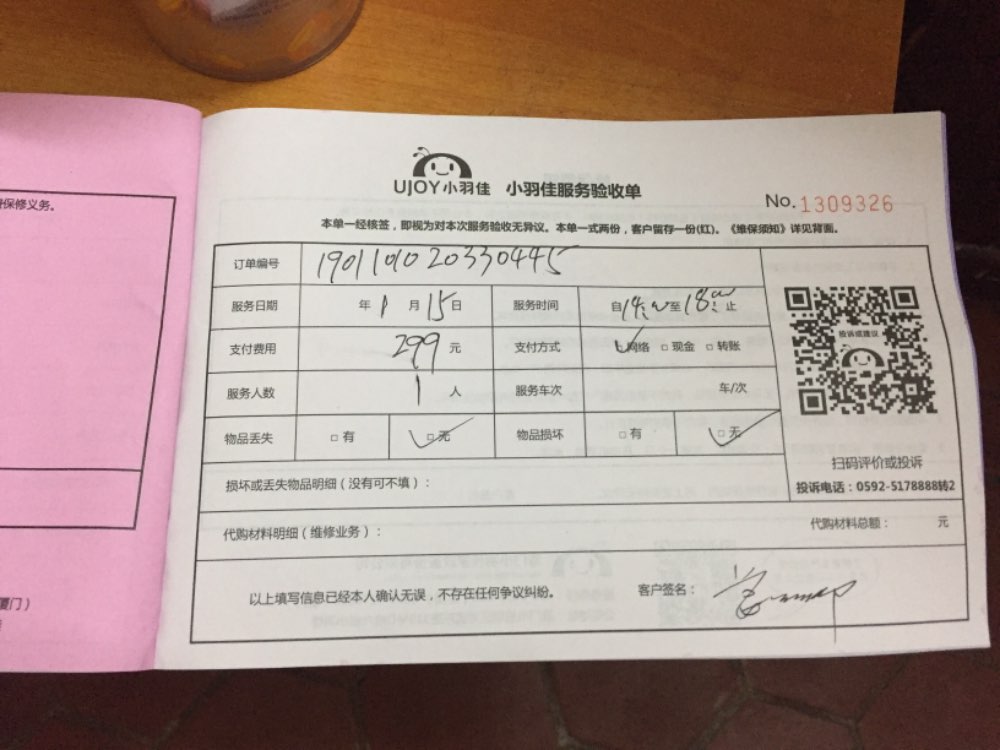 保修义务。
厦门）
UJOY小羽佳 小羽佳服务验收单
No. 1309326
本单一经核签，即视为对本次服务验收无异议。本单一式两份，客户留存一份(红)。《维保须知》详见背面。
订单编号 1901101020330445
服务日期 年 1 月 15 日 服务时间 自14: 至18:00止
支付费用 299 元 支付方式 ☑网络 □现金 □转账
服务人数 1 人 服务车次 车/次
物品丢失 □有 ☑无 物品损坏 □有 ☑无
投诉或建议
扫码评价或投诉
投诉电话：0592-5178888转2
损坏或丢失物品明细（没有可不填）：
代购材料明细（维修业务）： 代购材料总额： 元
以上填写信息已经本人确认无误，不存在任何争议纠纷。 客户签名：